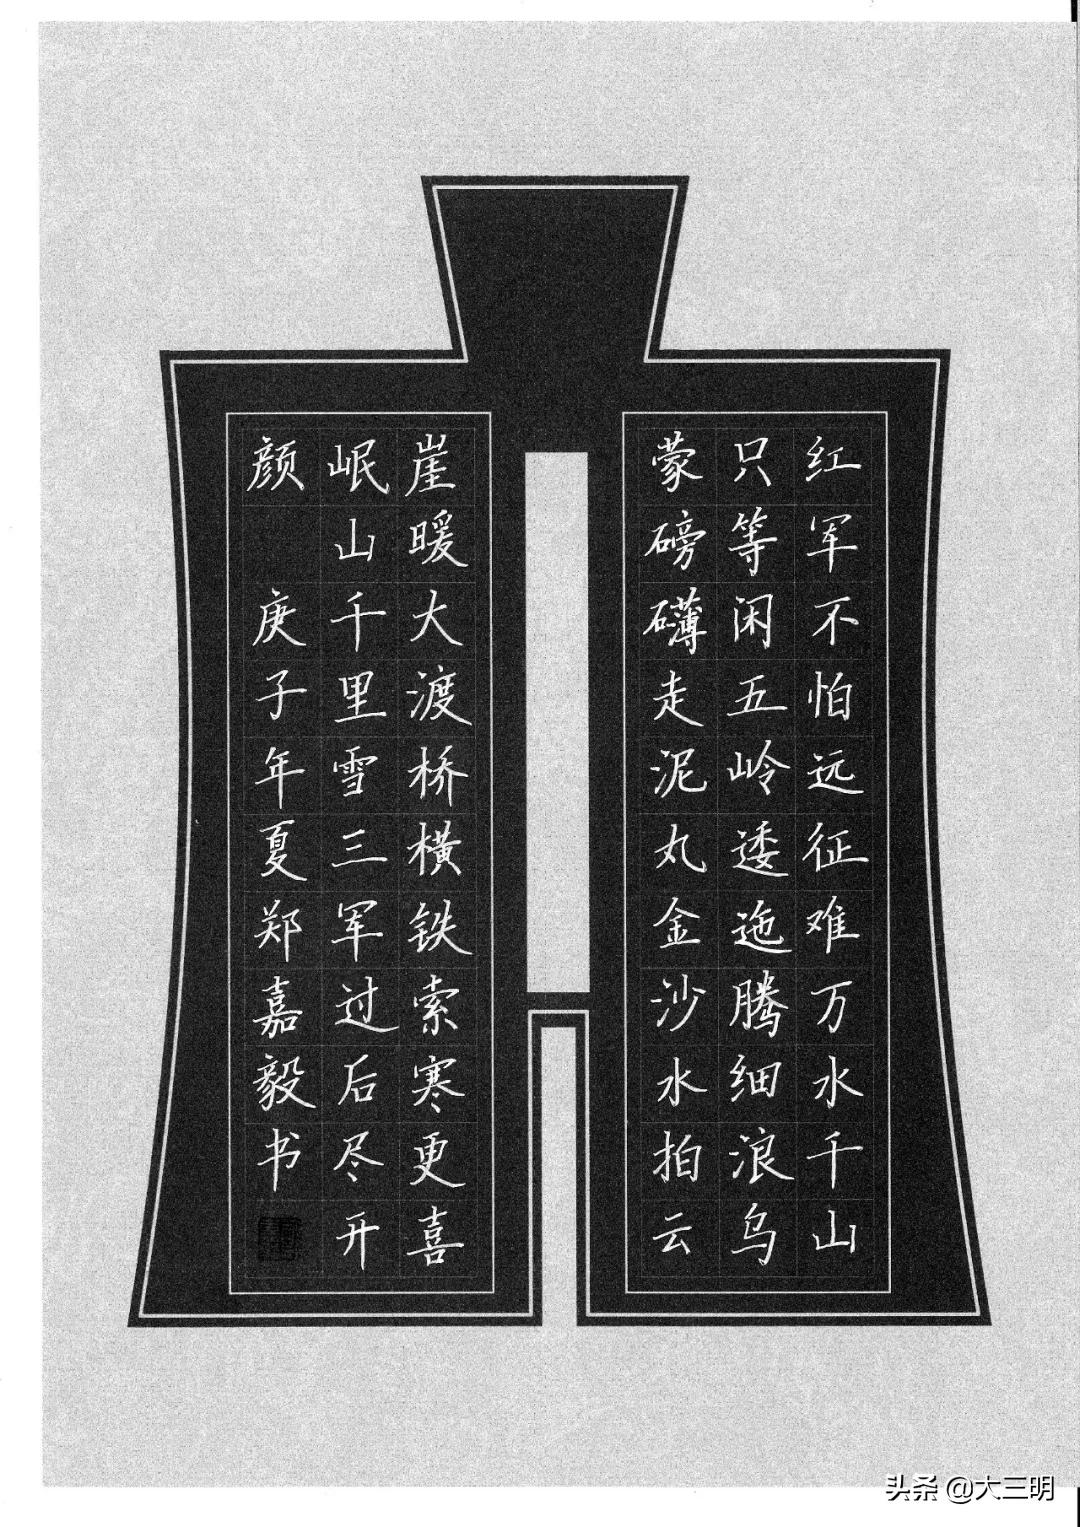 红军不怕远征难万水千山
只等闲五岭逶迤腾细浪乌
蒙磅礴走泥丸金沙水拍云
崖暖大渡桥横铁索寒更喜
岷山千里雪三军过后尽开
颜 庚子年夏郑嘉毅书
头条 @大三明